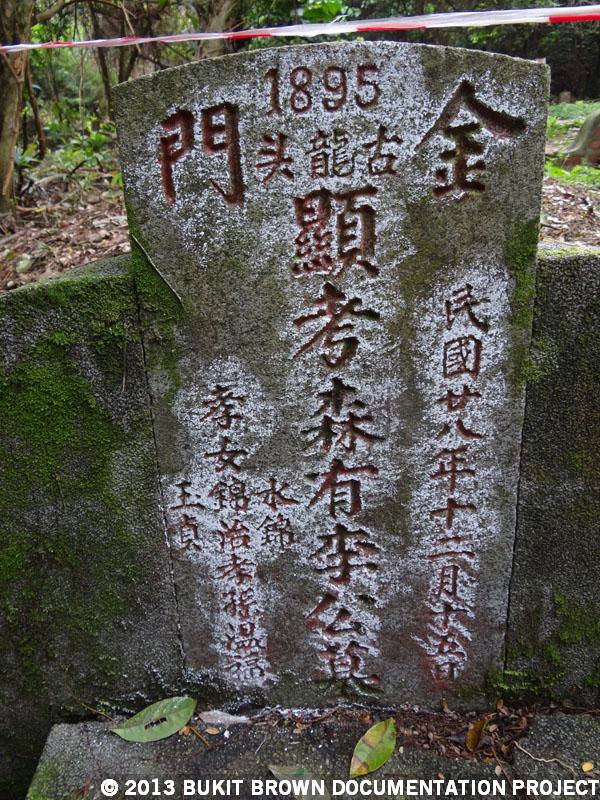 1895
金門
古龍头
民國廿八年十二月十五日
顯考森有李公墓
水錦
孝女錦治孝孫
玉貞
© 2013 BUKIT BROWN DOCUMENTATION PROJECT